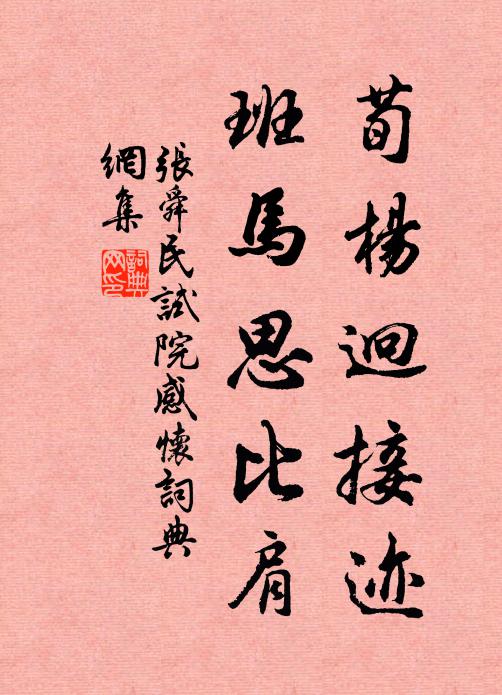 荀楊迴接迹
班馬思比肩
張舜民試院感懷詞典
網集
詞典
网印